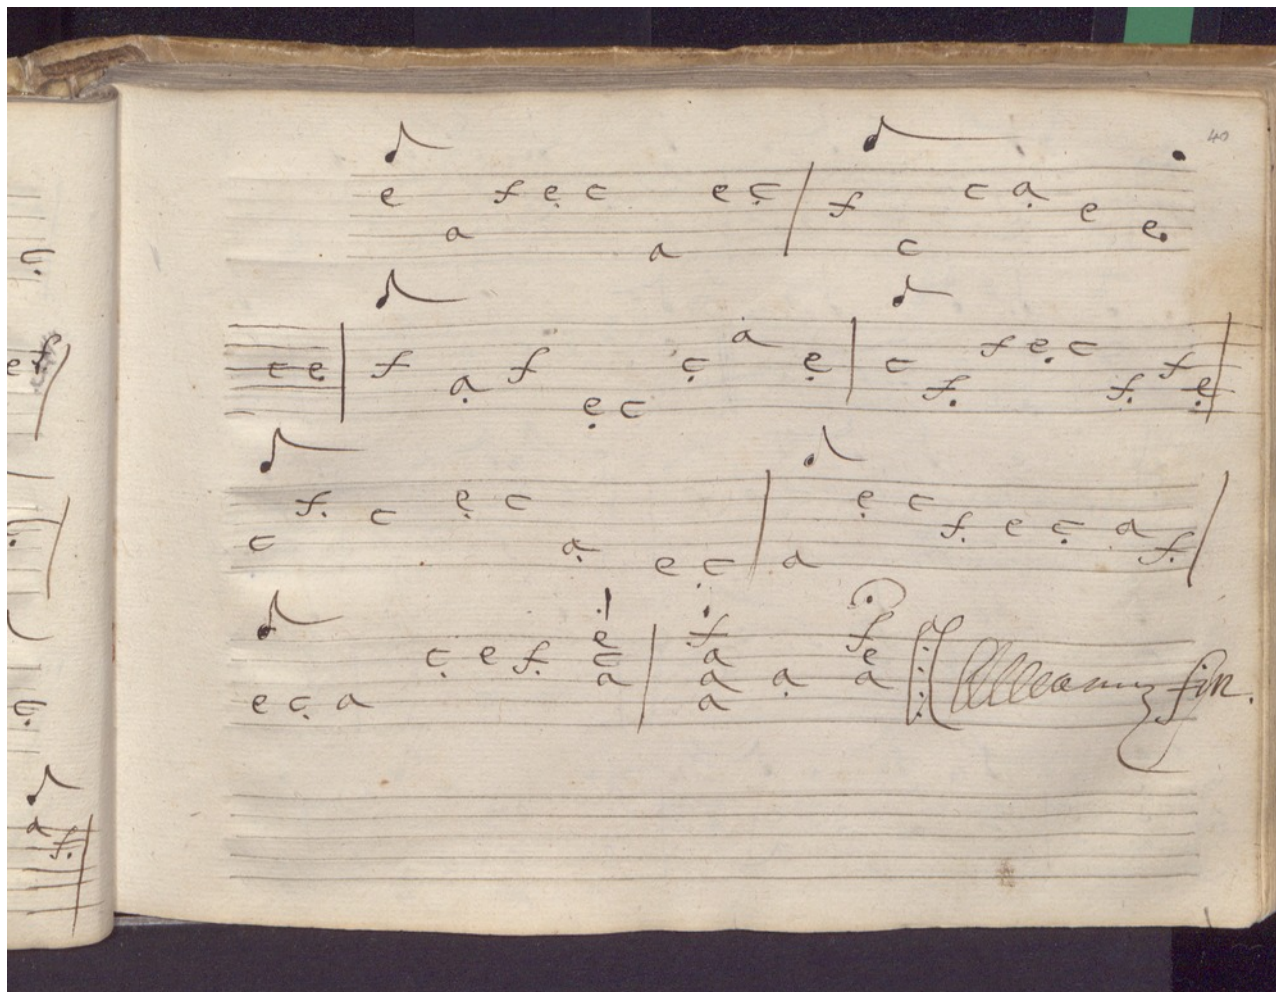 40
e a f e c a e c f c c a e e
c e f a f e c c a e c f f e c f f e
c f c e c a e c a e c f e c a f
e c a c e f e c a f a a a a f e a fin.